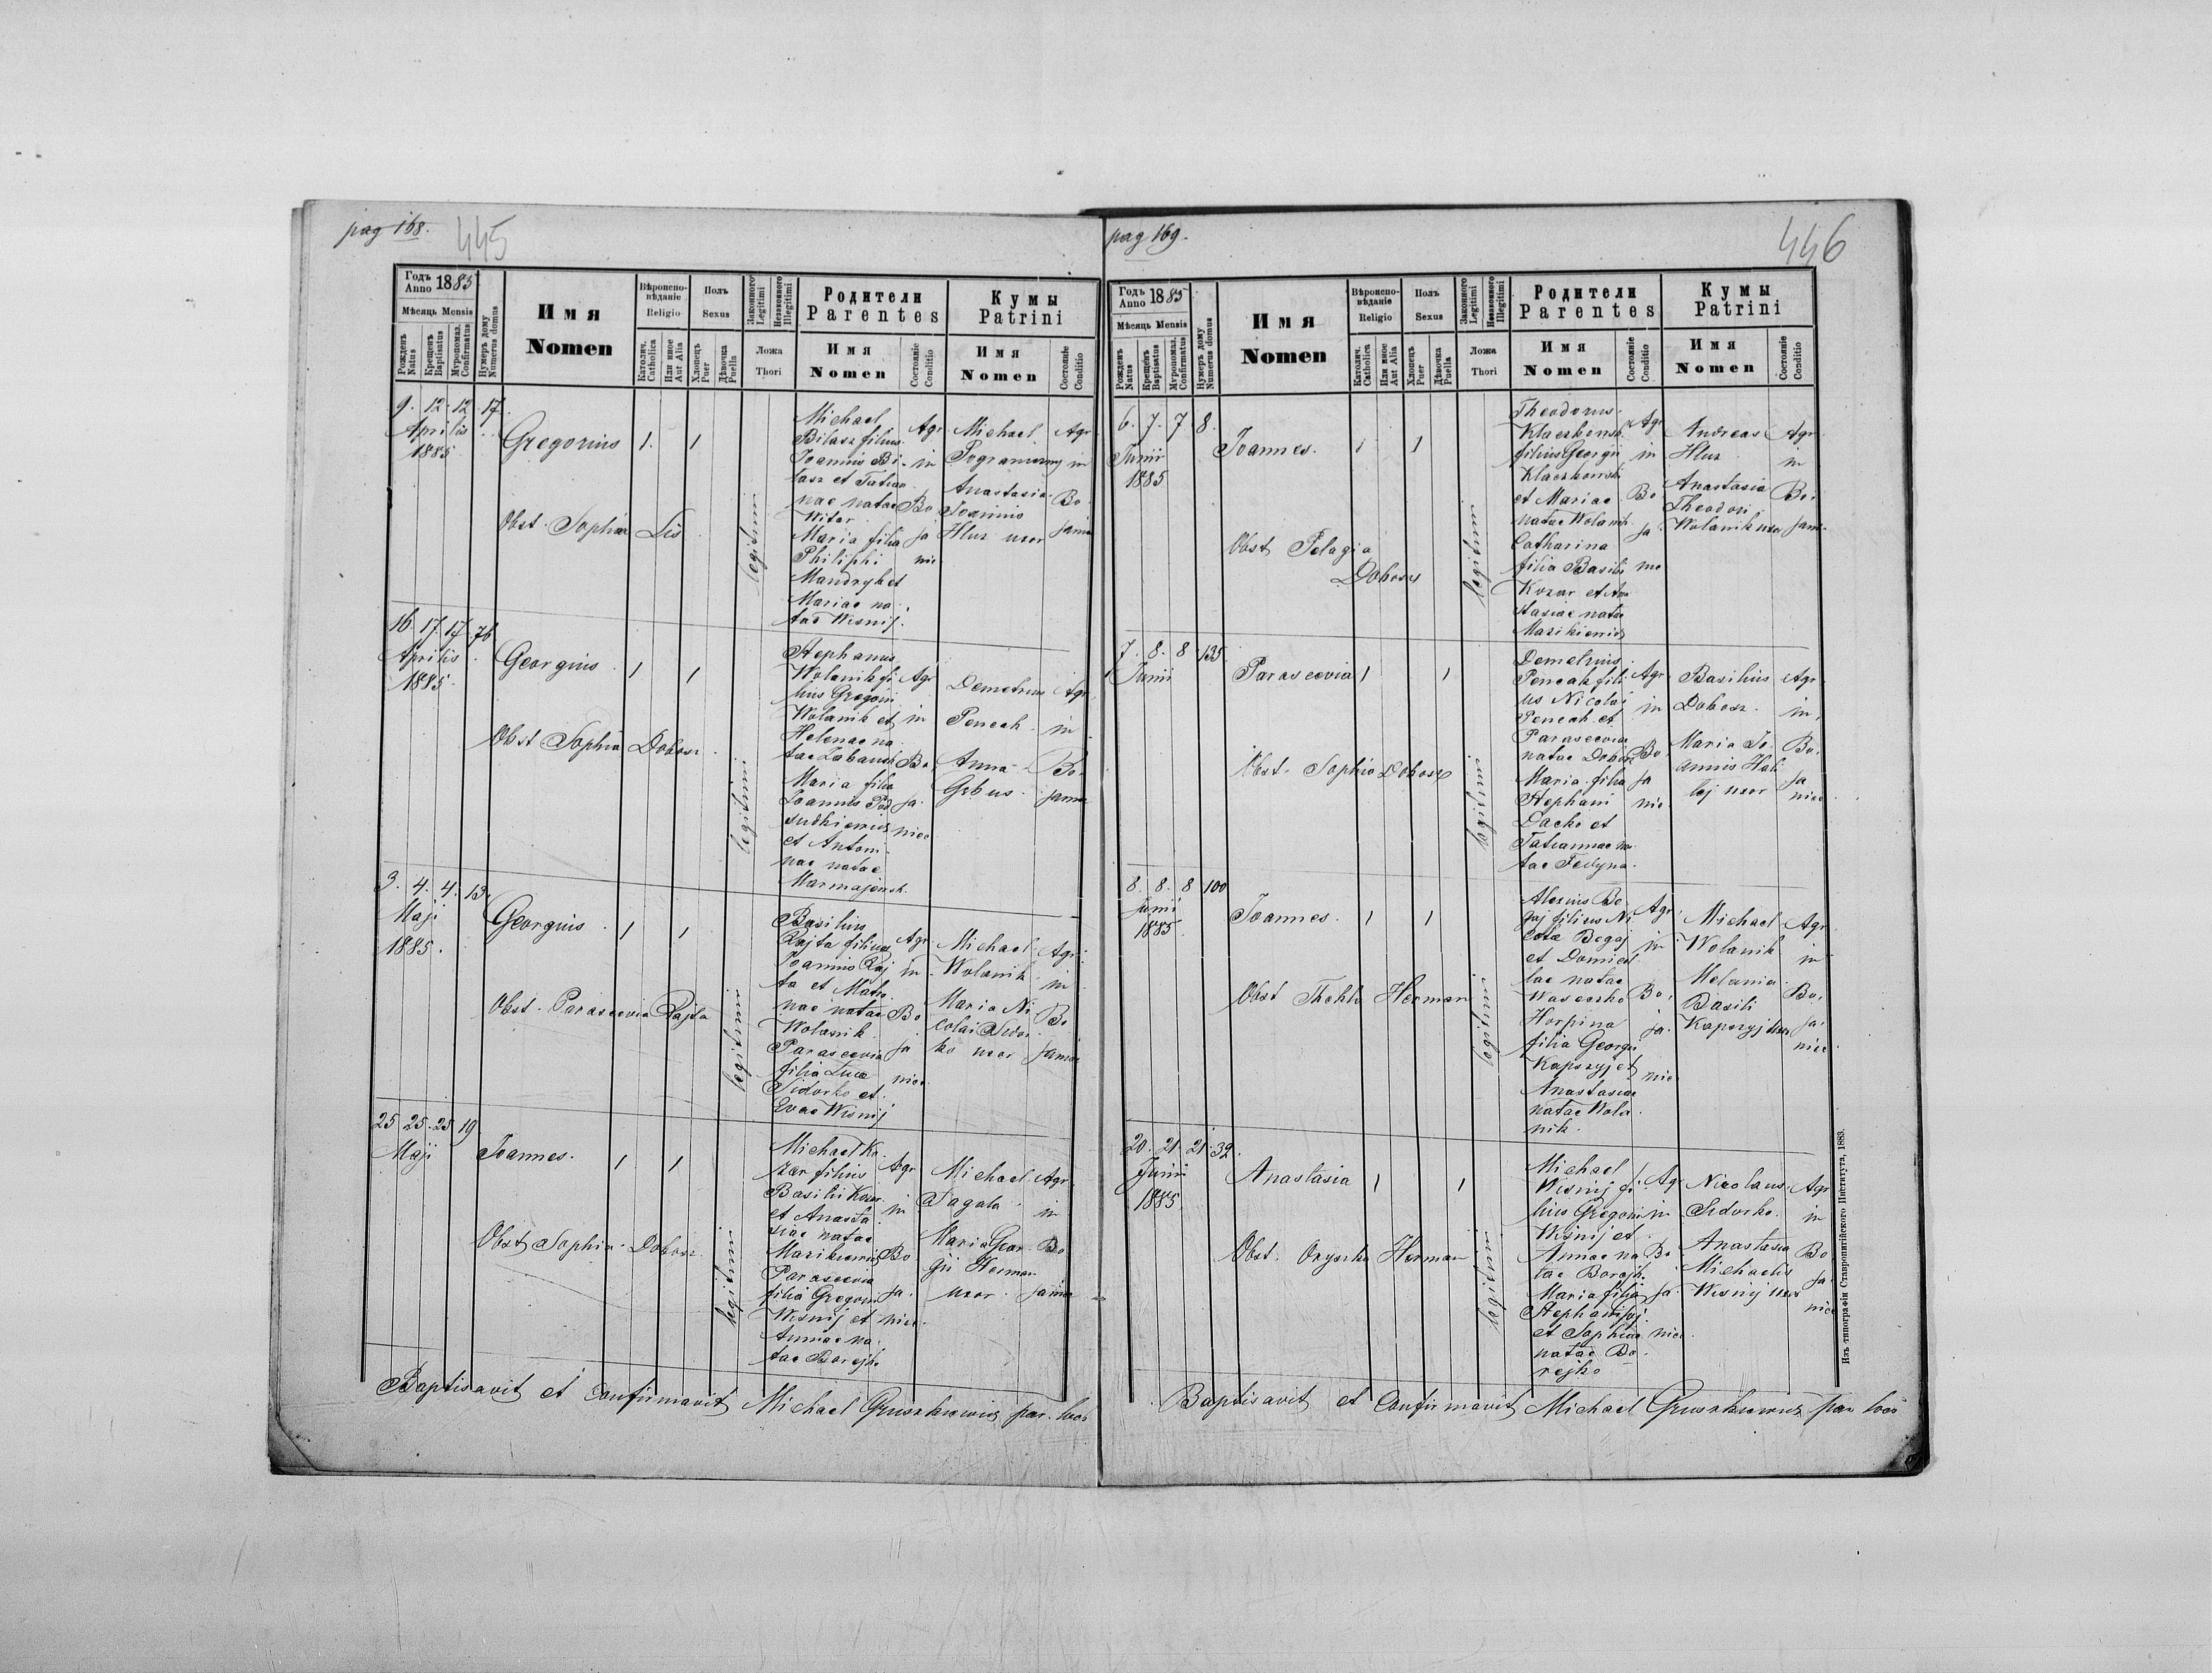 pag 168.
445
Годъ
Anno 1885
Мѣсяць Mensis
Рожденъ
Natus
Крещенъ
Baptisatus
Мѵропомаз.
Confirmatus
Нумеръ дому
Numerus domus
Имя
Nomen
Вѣроиспо-
вѣданіе
Religio
Католич.
Catholica
Или иное
Aut Alia
Полъ
Sexus
Хлопецъ
Puer
Дѣвочка
Puella
Законного
Legitimi
Незаконного
Illegitimi
Ложа
Thori
Родители
Parentes
Имя
Nomen
Состояніе
Conditio
Кумы
Patrini
Имя
Nomen
Состояніе
Conditio
9. 12. 12. 17.
Aprilis
1885
Gregorius 1. 1
Obst. Sophia Lis
legitimi
Michael
Bilasz filius
Joannis Bi-
lasz et Tatian
nae natae
Witer
Maria filia
Philiphi
Mandryk et
Mariae na
tae Wisnij.
Agr
in
Bo
ja
nic
Michael
Anastasia
Joannis
Hluz uxor
Agr
in
Bo
16. 17. 17. 76
Aprilis
1885.
Georgius 1 1
Obst Sophia Dobosz.
legitimi
Stephanus
Wolanik fi
lius Gregorii
Wolanik et
Helenae na
Maria filia
Joannis Pod
sudkiewicz
et Antoni-
nae natae
Agr
in
Bo
ja.
nice
Demetrius
Pencak
Anna
Grbus.
Agr
in
Bo
3. 4. 4. 13.
Maji
1885.
Georgius. 1 1
Obst. Parascevia Rajta
legitimi
Basilius
Rajta filius
Joannis Raj
ta et Matro
nae natae
Wolanik
Parascevia
filia Luca
Sidorko et
Evae Wisnij
Agr
in
Bo
ja
nice
Michael
Wolanik
Maria Ni
colai Sidor
ko uxor
Agr
in
Bo
25 25. 25 19
Maji
Joannes. 1 1
Obst Sophia Dobosz.
legitimi
Michael Ko
zar filius
Basilii Kozar
et Anasta
siae natae
Mazikiewicz
Parascevia
filia Gregorii
Wisnij et
Annae na
tae Borejk.
Agr
in
Bo
ja.
nice.
Michael
Sagala
Maria Geor
gii Herman
uxor.
Agr
in
Bo
Baptisavit et Confirmavit Michael Gruszkiewicz par. loci
pag 169.
446
Годъ
Anno 1885
Мѣсяць Mensis
Рожденъ
Natus
Крещенъ
Baptisatus
Мѵропомаз.
Confirmatus
Нумеръ дому
Numerus domus
Имя
Nomen
Вѣроиспо-
вѣданіе
Religio
Католич.
Catholica
Или иное
Aut Alia
Полъ
Sexus
Хлопецъ
Puer
Дѣвочка
Puella
Законного
Legitimi
Незаконного
Illegitimi
Ложа
Thori
Родители
Parentes
Имя
Nomen
Состояніе
Conditio
Кумы
Patrini
Имя
Nomen
Состояніе
Conditio
6. 7. 7 8.
Junii
1885
Joannes. 1 1
Obst Pelagia
Dobosz
legitimi
Theodorus
filius Georgii
et Mariae
natae Wolanik
Catharina
filia Basili
Kozar et Ana
stasiae natae
Mazikiewicz
Agr
in
Bo
ja
Andreas
Hluz
Anastasia
Theodori
Wolanik uxor
Agr
in
Bo
7. 8. 8 135.
Junii
Parascevia 1 1
Obst. Sophia Dobosz
legitimi
Demetrius
Pencak fili
us Nicolai
Pencak et
Parascevia
natae Dobosz
Maria filia
Stephani
Dacko et
Tatiannae na
tae Fedyna.
Agr
in
Bo
ja
nic
Basilius
Dobosz.
Maria Jo
annis Hali
uxor
Agr
in
Bo.
ja
nice
8. 8. 8 100
Junii
1885
Joannes. 1 1
Obst Thekla Herman
legitimi
Alexius Be
gaj filius Ni
colai Begaj
et Domicel
lae natae
Horpina
filia Georgii
Kapszyj et
Anastasiae
natae Wola
nik.
Agr.
in
Bo,
ja.
nic
Michael
Wolanik
Melania
Basili
Kapszyj uxor
Agr
in
Bo,
ja.
nice
20. 21. 21. 32.
Junii
1885.
Anastasia 1 1
Obst. Oryszka Herman
legitimi
Michael
Wisnij fi
lius Gregorii
Wisnij et
Annae na
tae Borejk.
Maria filia
et Sophiae
natae Bo
rejko
Agr
in
Bo
ja.
nice
Nicolaus
Sidorko.
Anastasia
Michaelis
Wisnij uxor
Agr
in
Bo
ja
nice
Baptisavit et Confirmavit Michael Gruszkiewicz par loci
Изъ типографіи Ставропигійского Института, 1883.